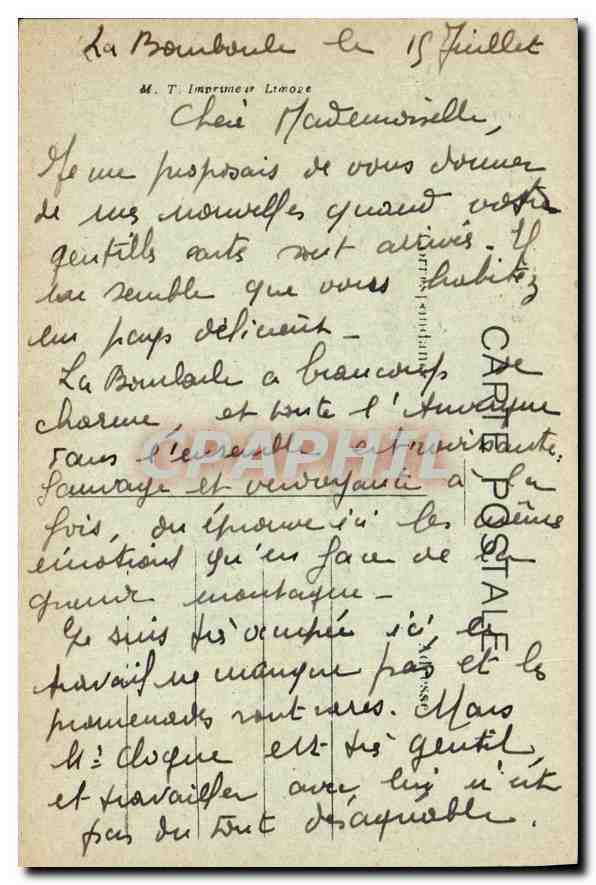 La Bourboule le 15 Juillet
M. T. Imprimeur Limoge
Chère Mademoiselle,
Je me proposais de vous donner
de mes nouvelles quand votre
gentille carte sont arrivés. Il
me semble que vous habitez
un pays délicieux –
La Bourboule a beaucoup de
charme, et toute l'Auvergne
dans l'ensemble est ravissante.
Sauvage et verdoyante à la
fois, on éprouve ici les mêmes
émotions qu'en face de la
grande montagne –
Je suis très occupée ici, le
travail ne manque pas et les
promenades sont rares. Mais
Mr Cloque est très gentil
et travailler avec lui n'est
pas du tout désagréable.
CARTE POSTALE
Correspondance
Adresse
CPAPHIL